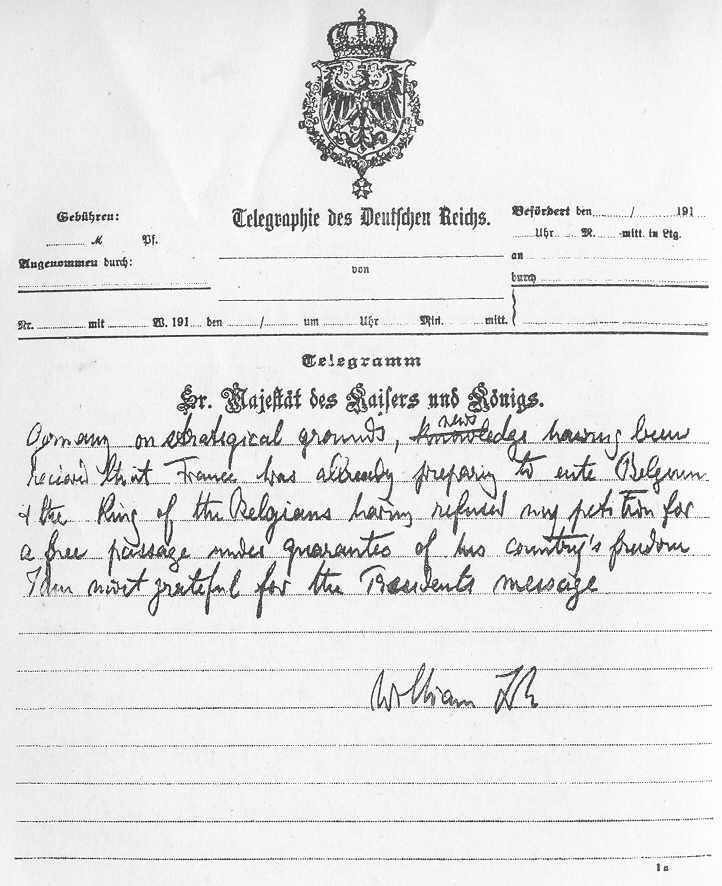 Gebühren:
M Pf.
Angenommen durch:
Telegraphie des Deutschen Reichs.
von
Befördert den / 191
Uhr M. mitt. in Ltg.
an
durch
Nr. mit W. 191 den / um Uhr Min. mitt.
Telegramm
Sr. Majestät des Kaisers und Königs.
news
Germany on strategical grounds, knowledge having been
recieved that France was allready preparing to ente Belgium
& the King of the Belgians having refused my petition for
a free passage under guarantee of his country's freedom
I am most grateful for the Presidents message
William I R
1a